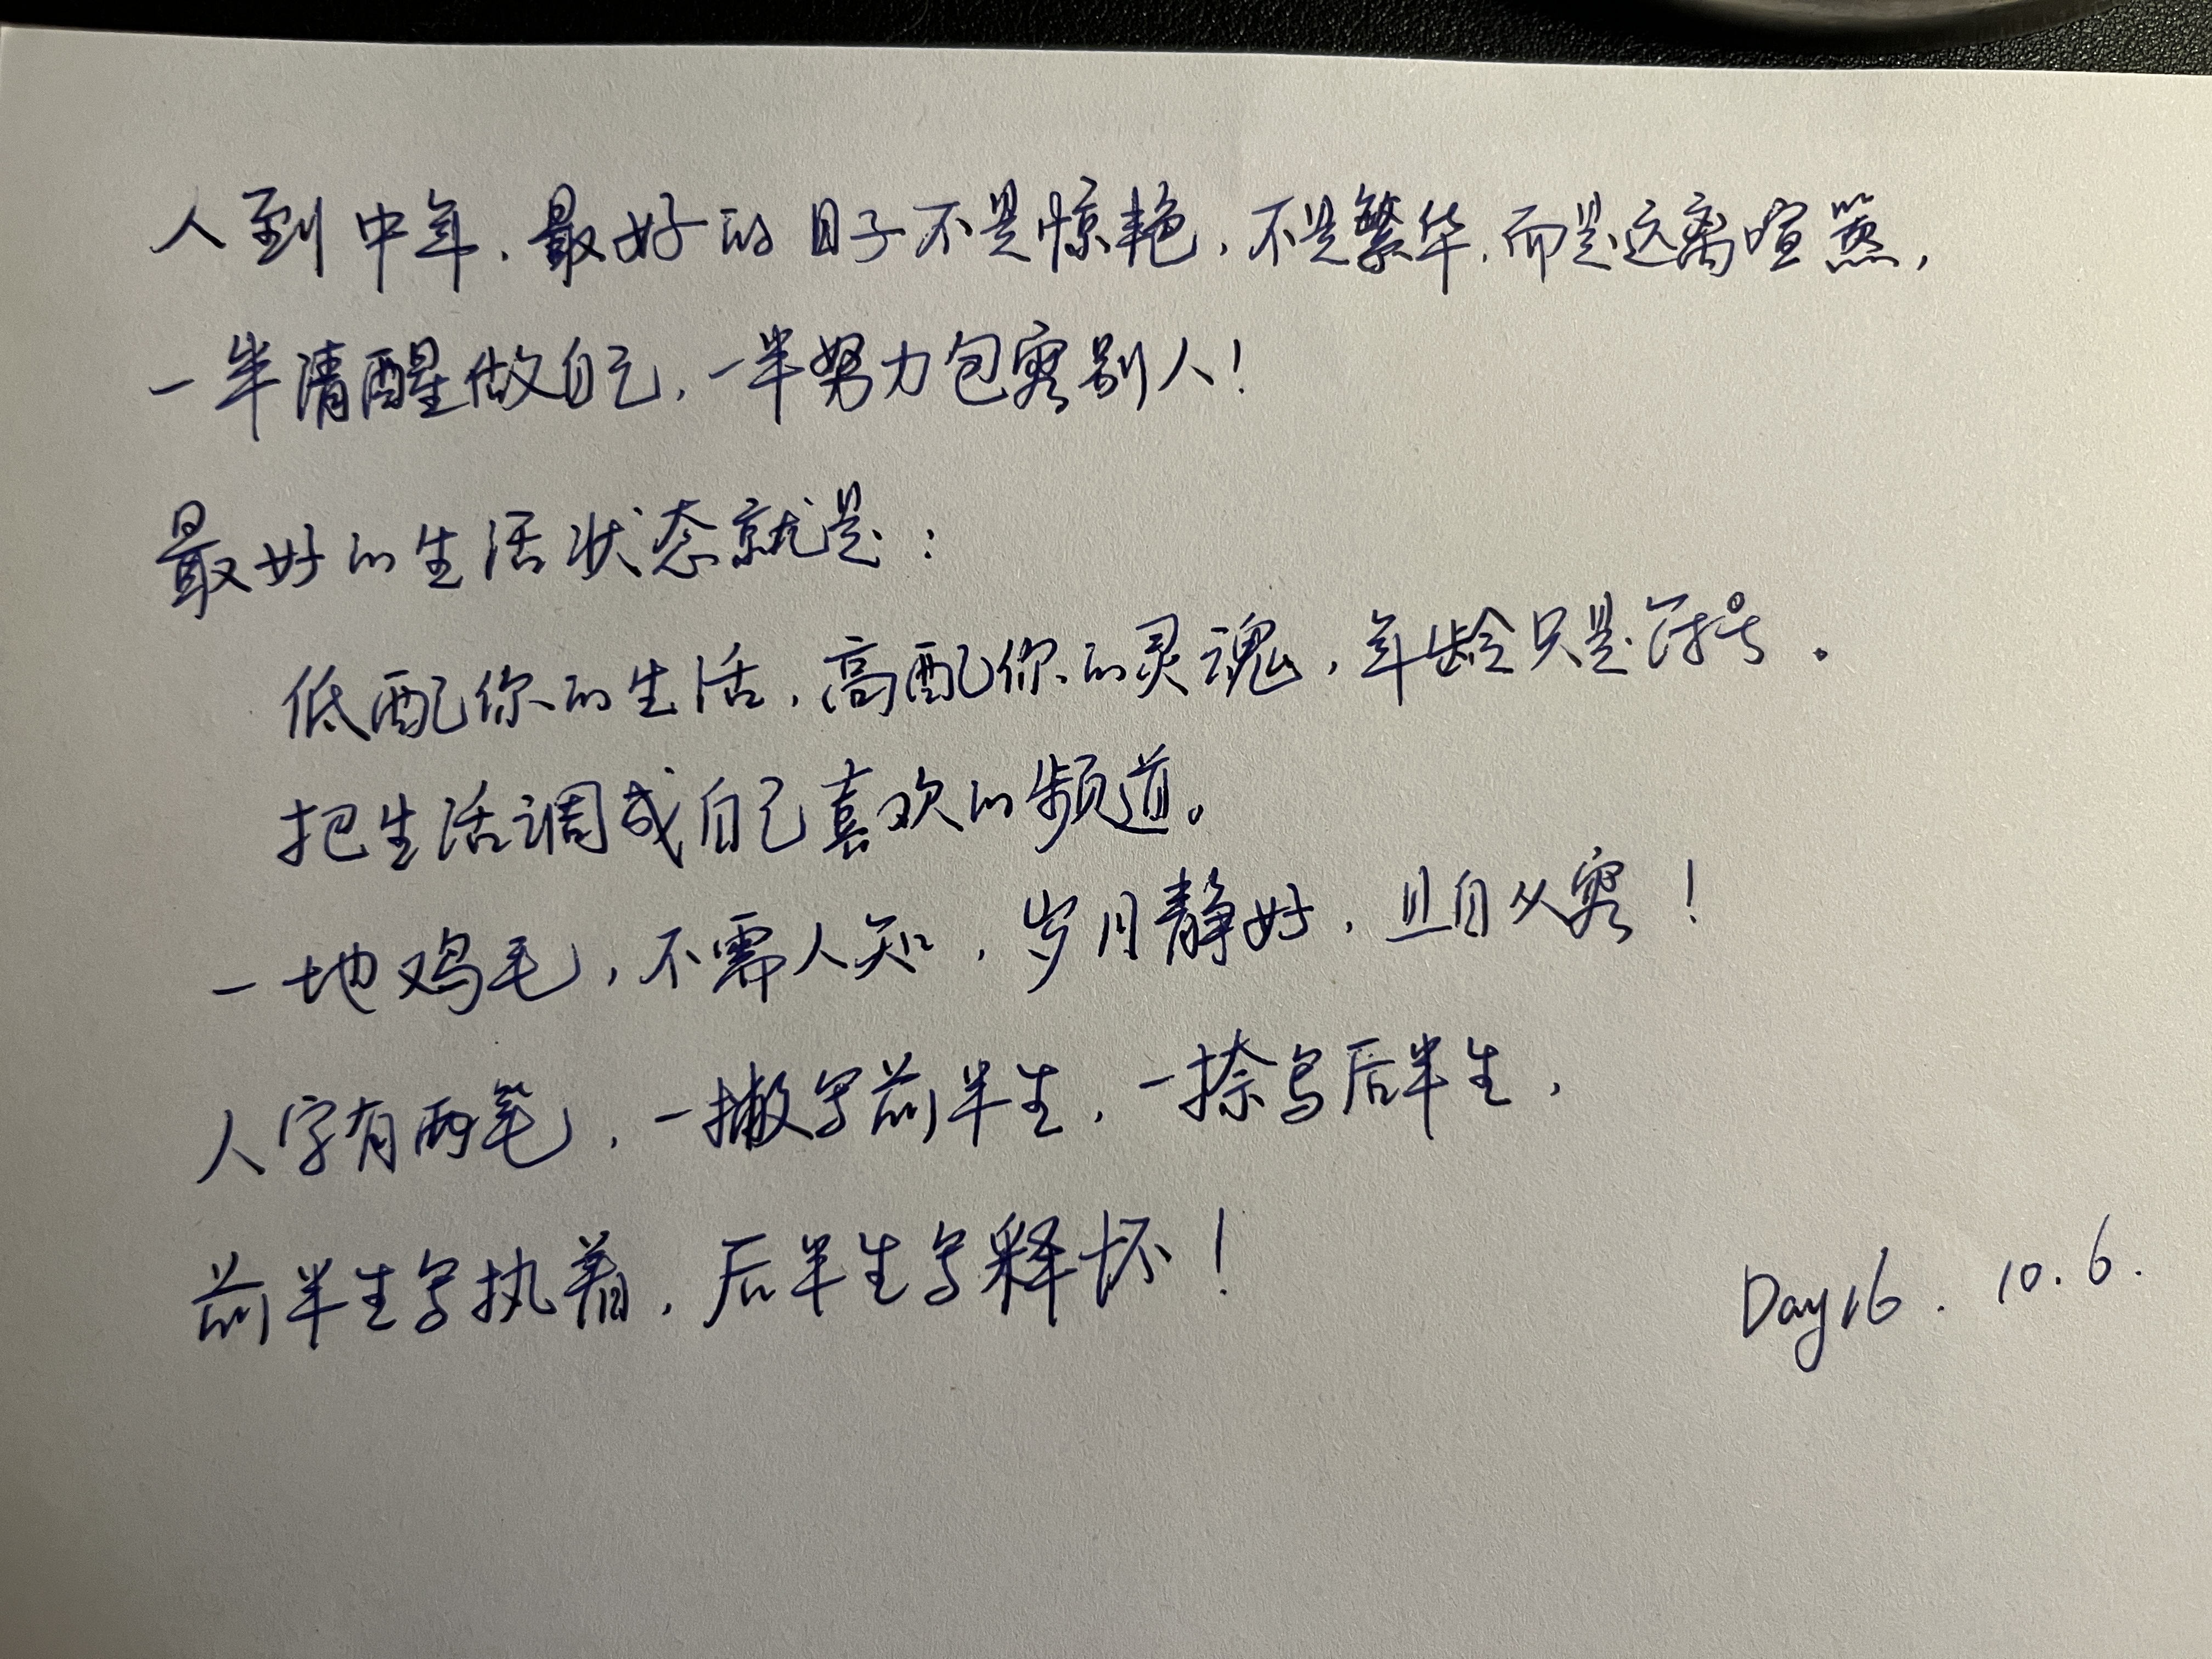 人到中年，最好的日子不是惊艳，不是繁华，而是远离喧嚣，
一半清醒做自己，一半努力包容别人！
最好的生活状态就是：
低配你的生活，高配你的灵魂，年龄只是符号。
把生活调成自己喜欢的频道。
一地鸡毛，不需人知，岁月静好，且自从容！
人字有两笔，一撇写前半生，一捺写后半生，
前半生写执着，后半生写释怀！
Day16. 10.6.